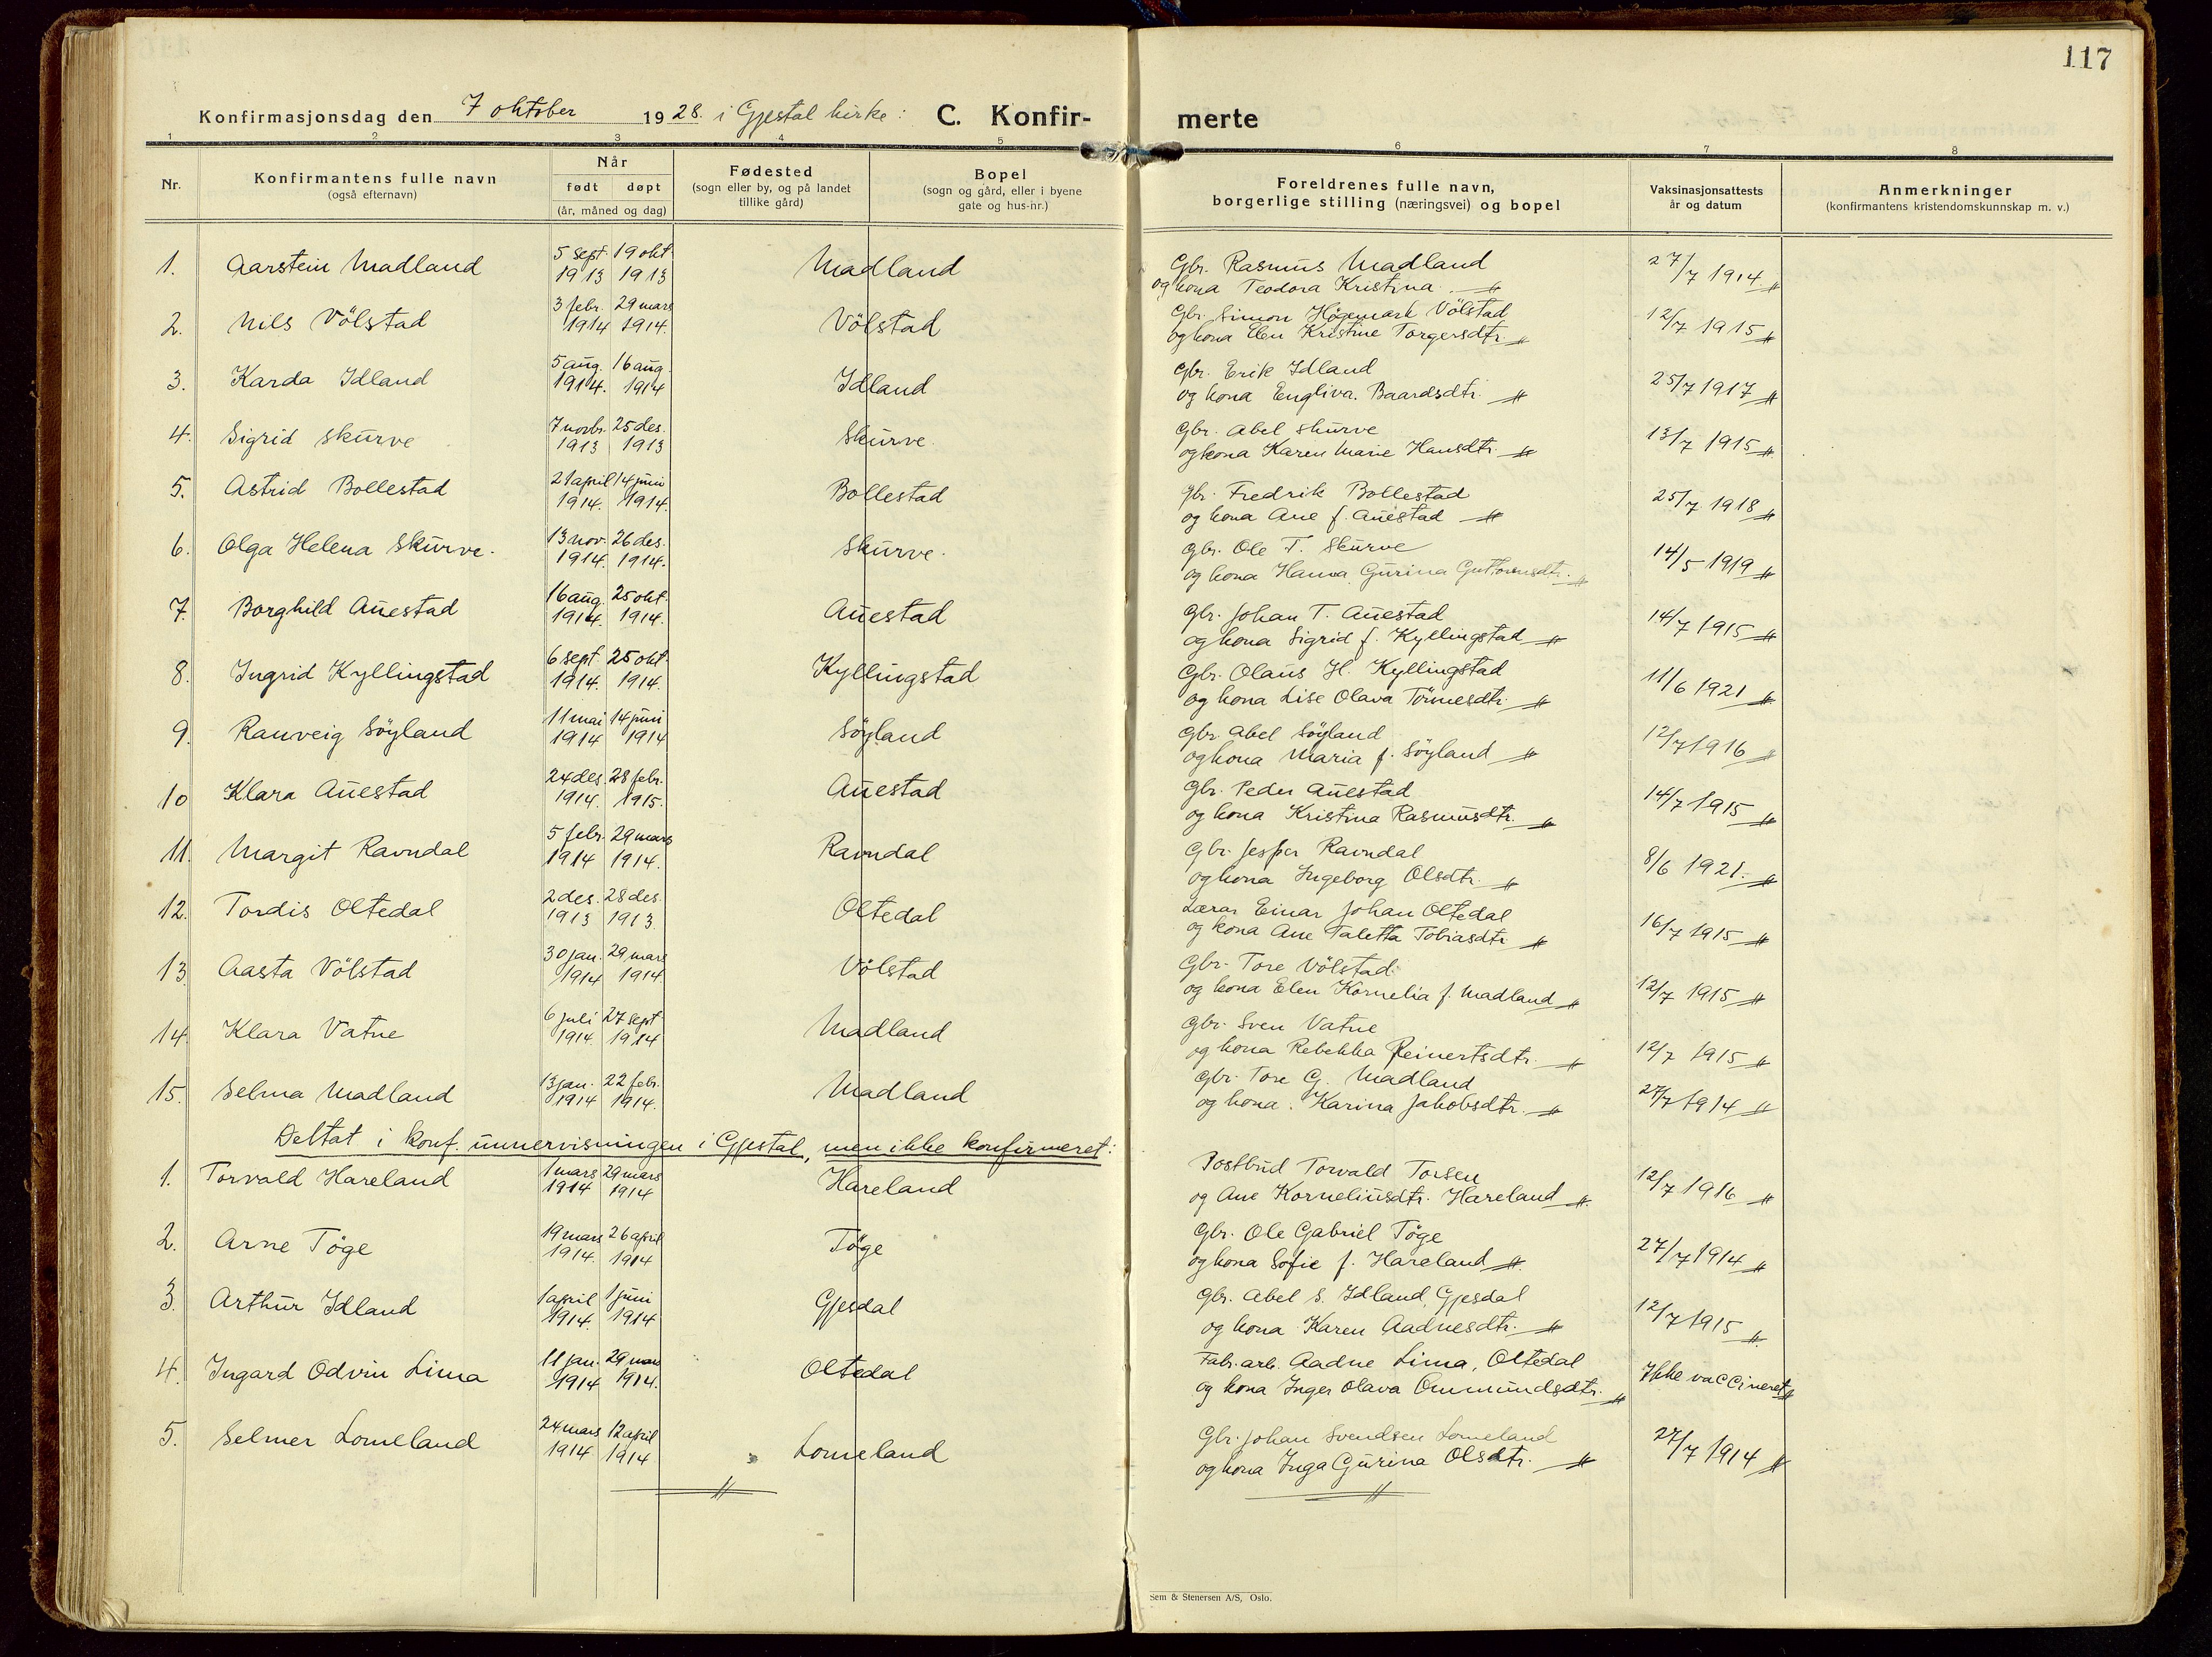 117
Konfirmasjonsdag den 7 oktober 1928. i Gjestal kirke: C. Konfirmerte
1 2 3 4 5 6 7 8
Nr. Konfirmantens fulle navn (også efternavn) Når født døpt (år, måned og dag) Fødested (sogn eller by, og på landet tillike gård) Bopel (sogn og gård, eller i byene gate og hus-nr.) Foreldrenes fulle navn, borgerlige stilling (næringsvei) og bopel Vaksinasjonsattests år og datum Anmerkninger (konfirmantens kristendomskunnskap m. v.)
1. Aarstein Madland 5 sept. 1913 19 okt. 1913 Madland Gbr. Rasmus Madland
og kona Teodora Kristina 27/7 1914
2. Nils Völstad 3 febr. 1914 29 mars 1914. Völstad Gbr. Simon Högemark Völstad
og kona Elen Kristine Torgersdtr. 12/7 1915
3. Karda Idland 5 aug. 1914. 16 aug. 1914 Idland Gbr. Erik Idland
og kona Engliva. Baardsdtr. 25/7 1917
4. Sigrid Skurve 7 novbr. 1913 25 des. 1913 Skurve. Gbr. Abel Skurve
og kona Karen Marie Hansdtr. 13/7 1915
5. Astrid Bollestad 21 april 1914. 14 juni 1914. Bollestad Gbr. Fredrik Bollestad
og kona Ane f. Auestad 25/7 1918
6. Olga Helena Skurve. 13 nov. 1914. 26 des. 1914. Skurve. Gbr. Ole T. Skurve
og kona Hanna Gurina Guttormsdtr. 14/5 1919
7. Borghild Auestad 16 aug. 1914. 25 okt. 1914. Auestad Gbr. Johan T. Auestad
og kona Sigrid f. Kyllingstad 14/7 1915
8. Ingrid Kyllingstad 6 sept. 1914. 25 okt. 1914. Kyllingstad Gbr. Olaus H. Kyllingstad
og kona Lise Olava Tönnesdtr. 11/6 1921
9. Ranveig Söyland 11 mai 1914 14 juni 1914 Söyland Gbr. Abel Söyland
og kona Maria f. Söyland 12/7 1916
10 Klara Auestad 24 des. 1914. 28 febr. 1915. Auestad Gbr. Peder Auestad
og kona Kristina Rasmusdtr. 14/7 1915
11. Margit Ravndal 5 febr. 1914 29 mars 1914. Ravndal Gbr. Jesper Ravndal
og kona Ingeborg Olsdtr. 8/6 1921.
12. Tordis Oltedal 2 des. 1913 28 des. 1913. Oltedal Lærar Einar Johan Oltedal
og kona Ane Taletta Tobiasdtr 16/7 1915
13. Aasta Völstad 30 jan. 1914 29 mars 1914. Völstad Gbr. Tore Völstad
og kona Elen Kornelia f. Madland 12/7 1915
14. Klara Vatne 6 juli 1914. 27 sept 1914 Madland Gbr. Sven Vatne
og kona Rebekka Reinertsdtr. 12/7 1915
15. Selma Madland 13 jan. 1914 22 febr. 1914. Madland Gbr. Tore G. Madland
og kona. Karina Jakobsdtr. 27/7 1914
Deltat i konf. unnervisningen i Gjestal, men ikke konfirmeret:
1. Torvald Hareland 1 mars 1914 29 mars 1914 Hareland Postbud Torvald Torsen
og Ane Korneliusdtr. Hareland 12/7 1916
2. Arne Töge 19 mars 1914. 26 april 1914 Töge Gbr. Ole Gabriel Töge
og kona Sofie f. Hareland 27/7 1914
3. Arthur Idland 1 april 1914. 1 juni 1914 Gjesdal Gbr. Abel S. Idland, Gjesdal
og kona Karen Aadnesdtr. 12/7 1915
4. Ingard Odvin Lima 11 jan. 1914 29 mars 1914. Oltedal Fabr. arb. Aadne Lima, Oltedal
og kona Inger Olava Ommundsdtr. Ikke vaccineret
5. Selmer Lomeland 24 mars 1914 12 april 1914 Lomeland Gbr. Johan Svendsen Lomeland
og kona Inga Gurina Olsdtr. 27/7 1914
Sem & Stenersen A/S, Oslo.